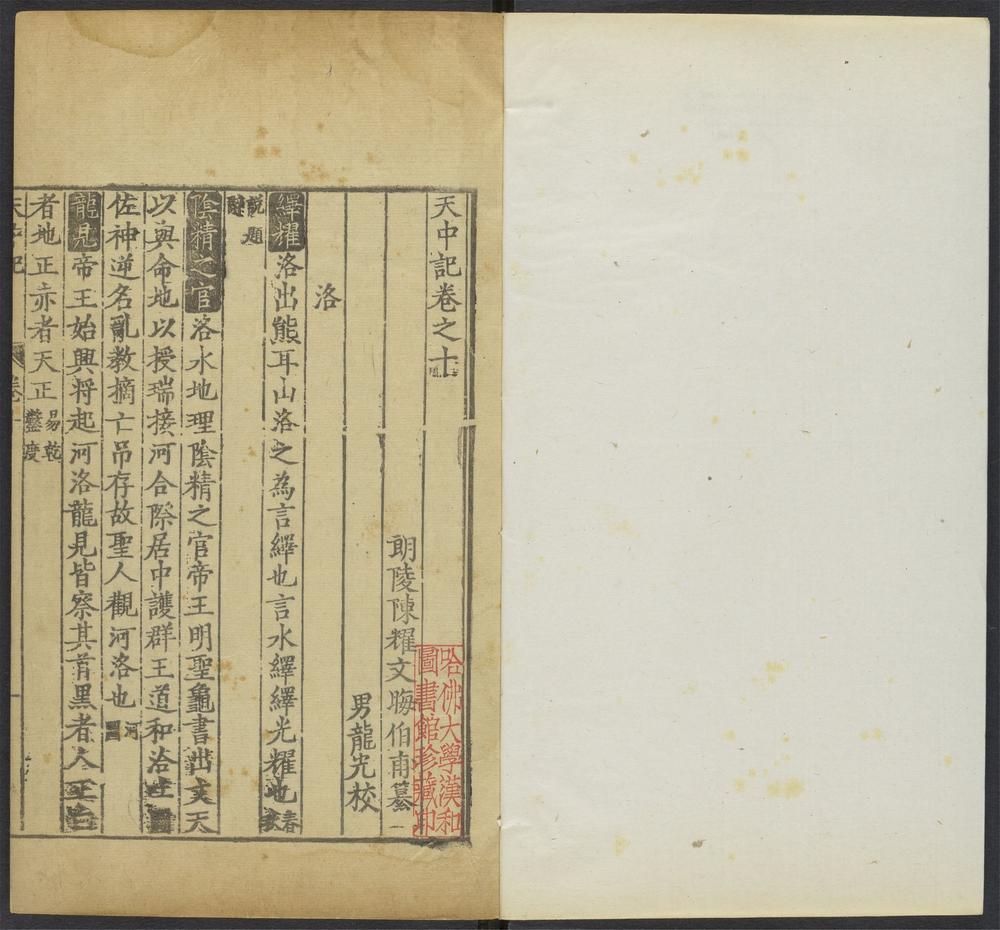 天中記卷之十
朗陵陳耀文晦伯甫纂
男龍光校
洛
繹耀洛出熊耳山洛之為言繹也言水繹繹光耀也春
說題
陰精之官洛水地理陰精之官帝王明聖龜書出文天
以與命地以授瑞接河合際居中護群王道和洽
佐神逆名亂教摘亡吊存故聖人觀河洛也河圖
龍見帝王始興将起河洛龍見皆察其首黒者人正白
者地正亦者天正易乾鑿度
天中記 卷十
哈佛大學漢和
圖書館珍藏印